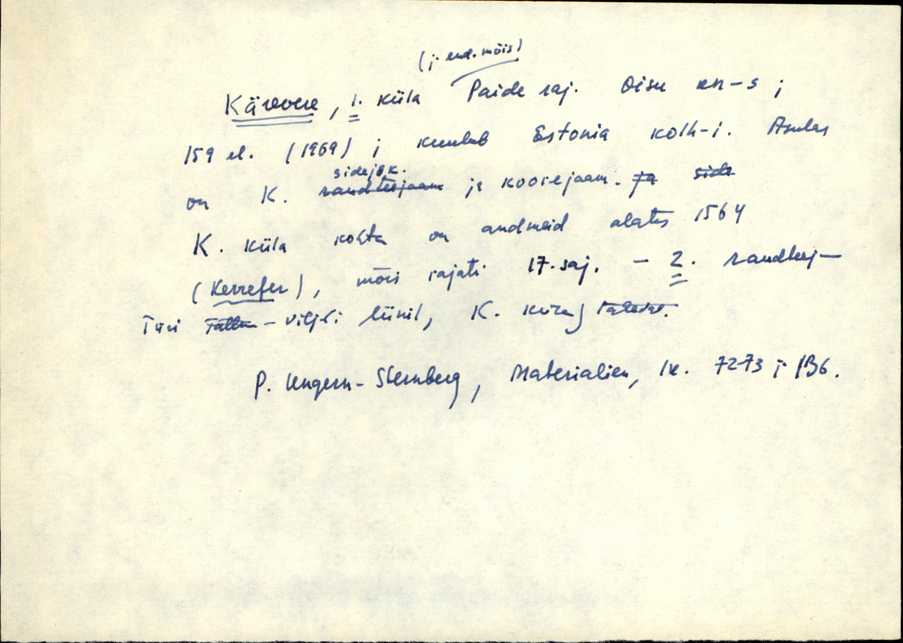 (j. end. mõis)
Kärevere, 1. küla Paide raj. Oisu kn-s ;
159 el. (1969) ; kuulub Estonia kolh-i. Asulas
sidejsk.
on K. raudteejaam ja koorejaam. ja side
K. küla kohta on andmeid alates 1564
(Kerrefer), mõis rajati 17. saj. – 2. raudteej–
Türi Talln – Viljandi liinil, K.
P. Ungern-Sternberg, Materialien, lk. 72-73 ; 136.